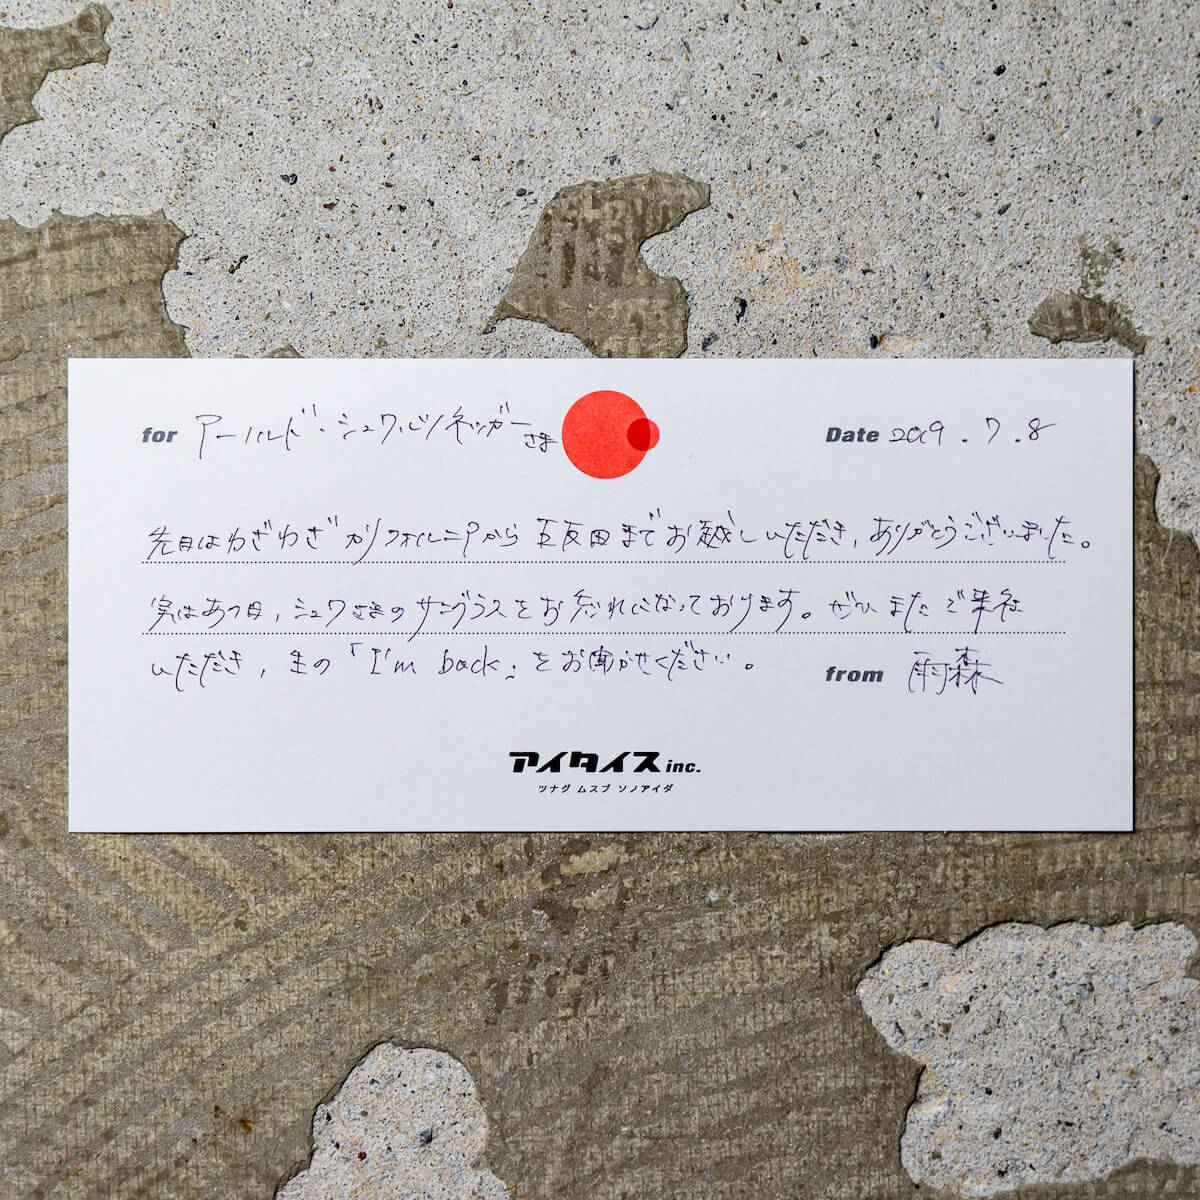 for アーノルド・シュワルツネッガーさま
Date 2019.7.8
先日はわざわざカリフォルニアから五反田までお越しいただき、ありがとうございました。
実はあの日、シュワさまのサングラスをお忘れになっております。ぜひまたご来社
いただき、生の「I'm back」をお聞かせください。
from 雨森
アイタイス inc.
ツナグ ムスブ ソノアイダ